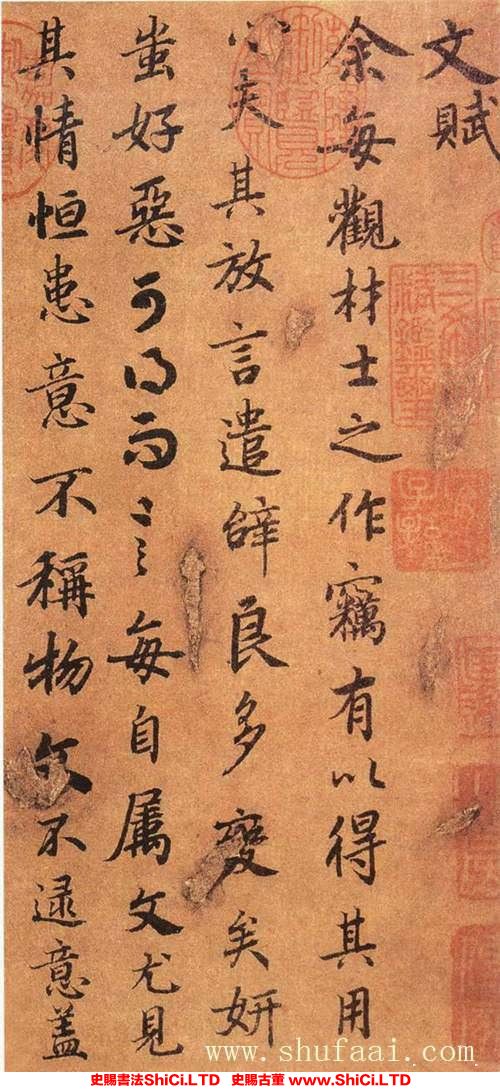 文賦
余每觀材士之作竊有以得其用
心夫其放言遣辭良多變矣妍
蚩好惡可得而言每自屬文尤見
其情恒患意不稱物文不逮意蓋
www.shufaai.com
史賜書法ShiCi.LTD 史賜古董www.ShiCi.LTD